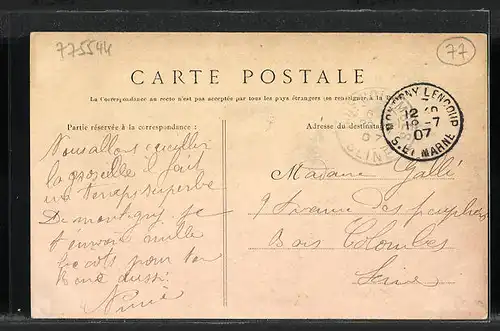 775544
77
CARTE POSTALE
La Correspondance au recto n'est pas acceptée par tous les pays étrangers (se renseigner à la
Partie réservée à la correspondance :
Adresse du destinataire
MONTIGNY LENCOUP
12
12 -7
07
S. ET MARNE
Nous allons cueillir
la groseille il fait
un temps superbe
De montigny je
t'envoie mille
bécots pour ton
aussi
Madame Gallé
9 Avenue des peupliers
Bois Colombes
Seine